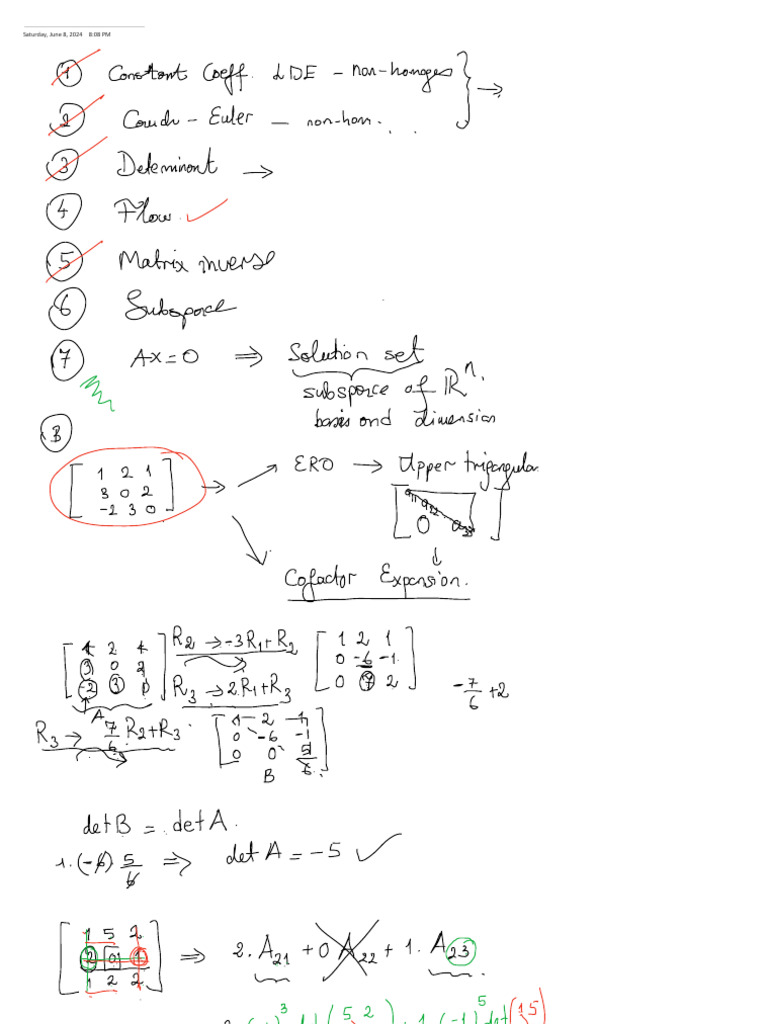 Saturday, June 8, 2024 8:08 PM
1 Constant Coeff. LDE - non-homoges
2 Couch - Euler - non-hom. →
3 Determinant →
4 Flow. ✓
5 Matrix inverse
6 Subspace
7 AX=0 ⇒ Solution set
subspace of ℝⁿ.
basis and dimension
B
1 2 1
3 0 2
-2 3 0
→ ERO → Upper trigangular
a11 a22 a33 0
Cofactor Expansion.
1 2 1
3 0 2
-2 3 0
A
R2 → -3R1+R2
R3 → 2R1+R3
1 2 1
0 -6 -1
0 7 2
-7/6 +2
R3 → 7/6 R2+R3
1 2 1
0 -6 -1
0 0 5/6
B
det B = det A.
1.(-6) 5/6 ⇒ det A = -5 ✓
1 5 2
2 0 1
1 2 2
⇒ 2.A21 + 0 A22 + 1. A23